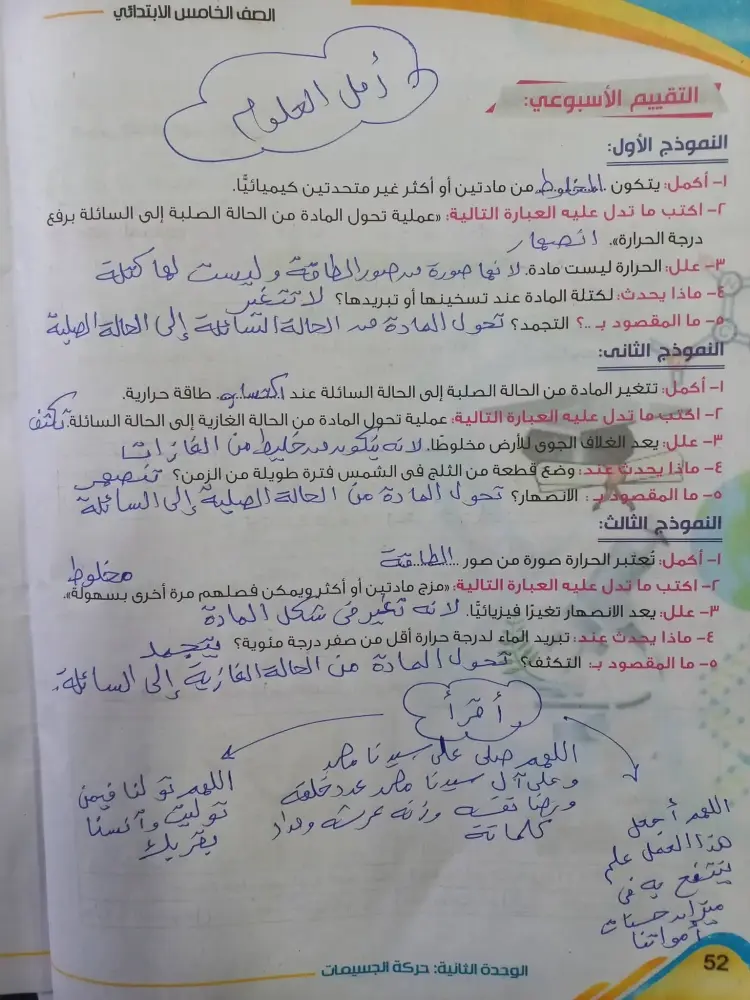 الصف الخامس الابتدائي
أمل العلوم
التقييم الأسبوعي:
النموذج الأول:
١- أكمل: يتكون .المخلوط. من مادتين أو أكثر غير متحدتين كيميائيًّا.
٢- اكتب ما تدل عليه العبارة التالية: «عملية تحول المادة من الحالة الصلبة إلى السائلة برفع
درجة الحرارة». انصهار
٣- علل: الحرارة ليست مادة. لانها صورة من صور الطاقة وليست لها كتلة
٤- ماذا يحدث: لكتلة المادة عند تسخينها أو تبريدها؟ لا تتغير
٥- ما المقصود بـ ..؟ التجمد؟ تحول المادة من الحالة السائلة إلى الحالة الصلبة
النموذج الثانى:
١- أكمل: تتغير المادة من الحالة الصلبة إلى الحالة السائلة عند .اكتساب. طاقة حرارية.
٢- اكتب ما تدل عليه العبارة التالية: عملية تحول المادة من الحالة الغازية إلى الحالة السائلة. تكثف
٣- علل: يعد الغلاف الجوى للأرض مخلوطًا. لانه يتكون من خليط من الغازات
٤- ماذا يحدث عند: وضع قطعة من الثلج فى الشمس فترة طويلة من الزمن؟ تنصهر
٥- ما المقصود بـ: الانصهار؟ تحول المادة من الحالة الصلبة إلى السائلة
النموذج الثالث:
١- أكمل: تُعتبر الحرارة صورة من صور .الطاقة...
٢- اكتب ما تدل عليه العبارة التالية: «مزج مادتين أو أكثر ويمكن فصلهم مرة أخرى بسهولة». مخلوط
٣- علل: يعد الانصهار تغيرًا فيزيائيًا. لانه تغير فى شكل المادة
٤- ماذا يحدث عند: تبريد الماء لدرجة حرارة أقل من صفر درجة مئوية؟ يتجمد
٥- ما المقصود بـ: التكثف؟ تحول المادة من الحالة الغازية إلى السائلة.
وأخرأ
اللهم صلى على سيدنا محمد
وعلى آل سيدنا محمد عدد خلقه
ورضا نفسه وزنه عرشه ومداد
كلماتة
اللهم تولنا فيمن
توليت وآنسنا
بقربك
اللهم أجعل
هذا العمل علم
ينتفع به فى
ميزان حسنات
أمواتنا
الوحدة الثانية: حركة الجسيمات
52